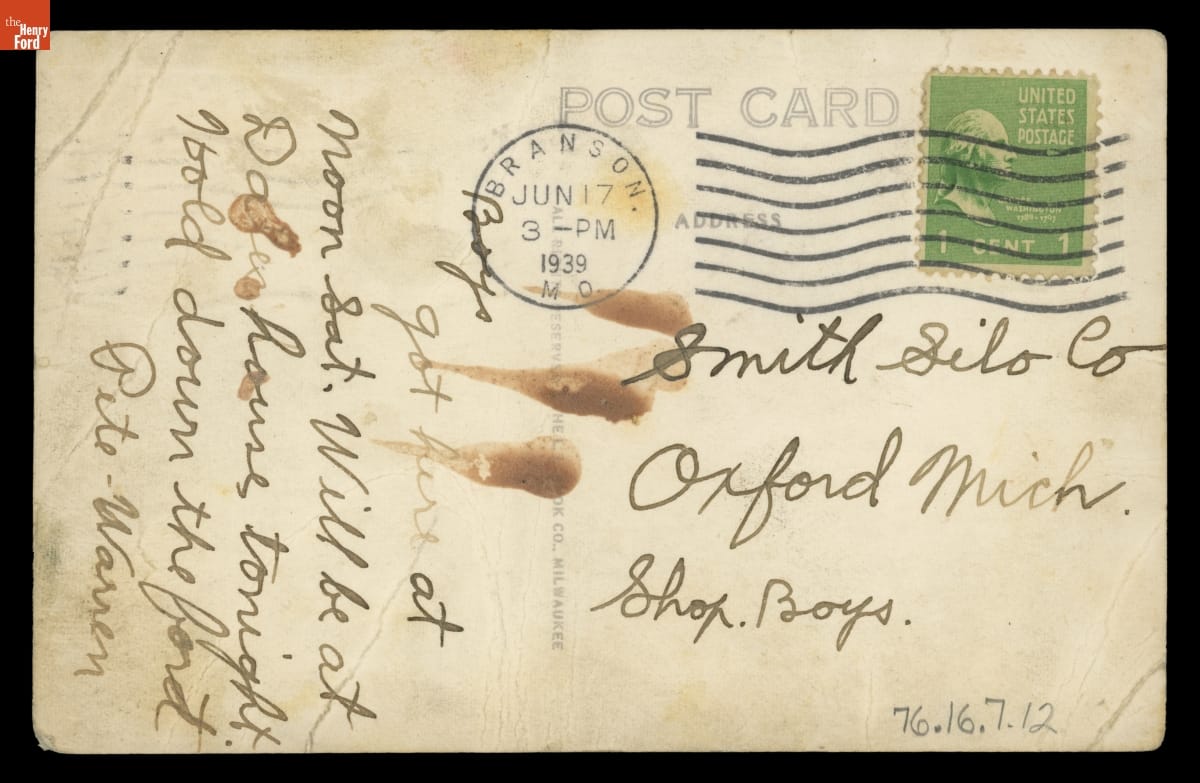 the
Henry
Ford
POST CARD
BRANSON.
JUN 17
3 -PM
1939
MO
ADDRESS
UNITED
STATES
POSTAGE
WASHINGTON
1789-1797
1 CENT 1
Boys
got here at
Noon Sat. Will be at
house tonight.
Hold down the ford
Pete-Warren
CO., MILWAUKEE
Smith Silo Co
Oxford Mich.
Shop. Boys.
76.16.7.12